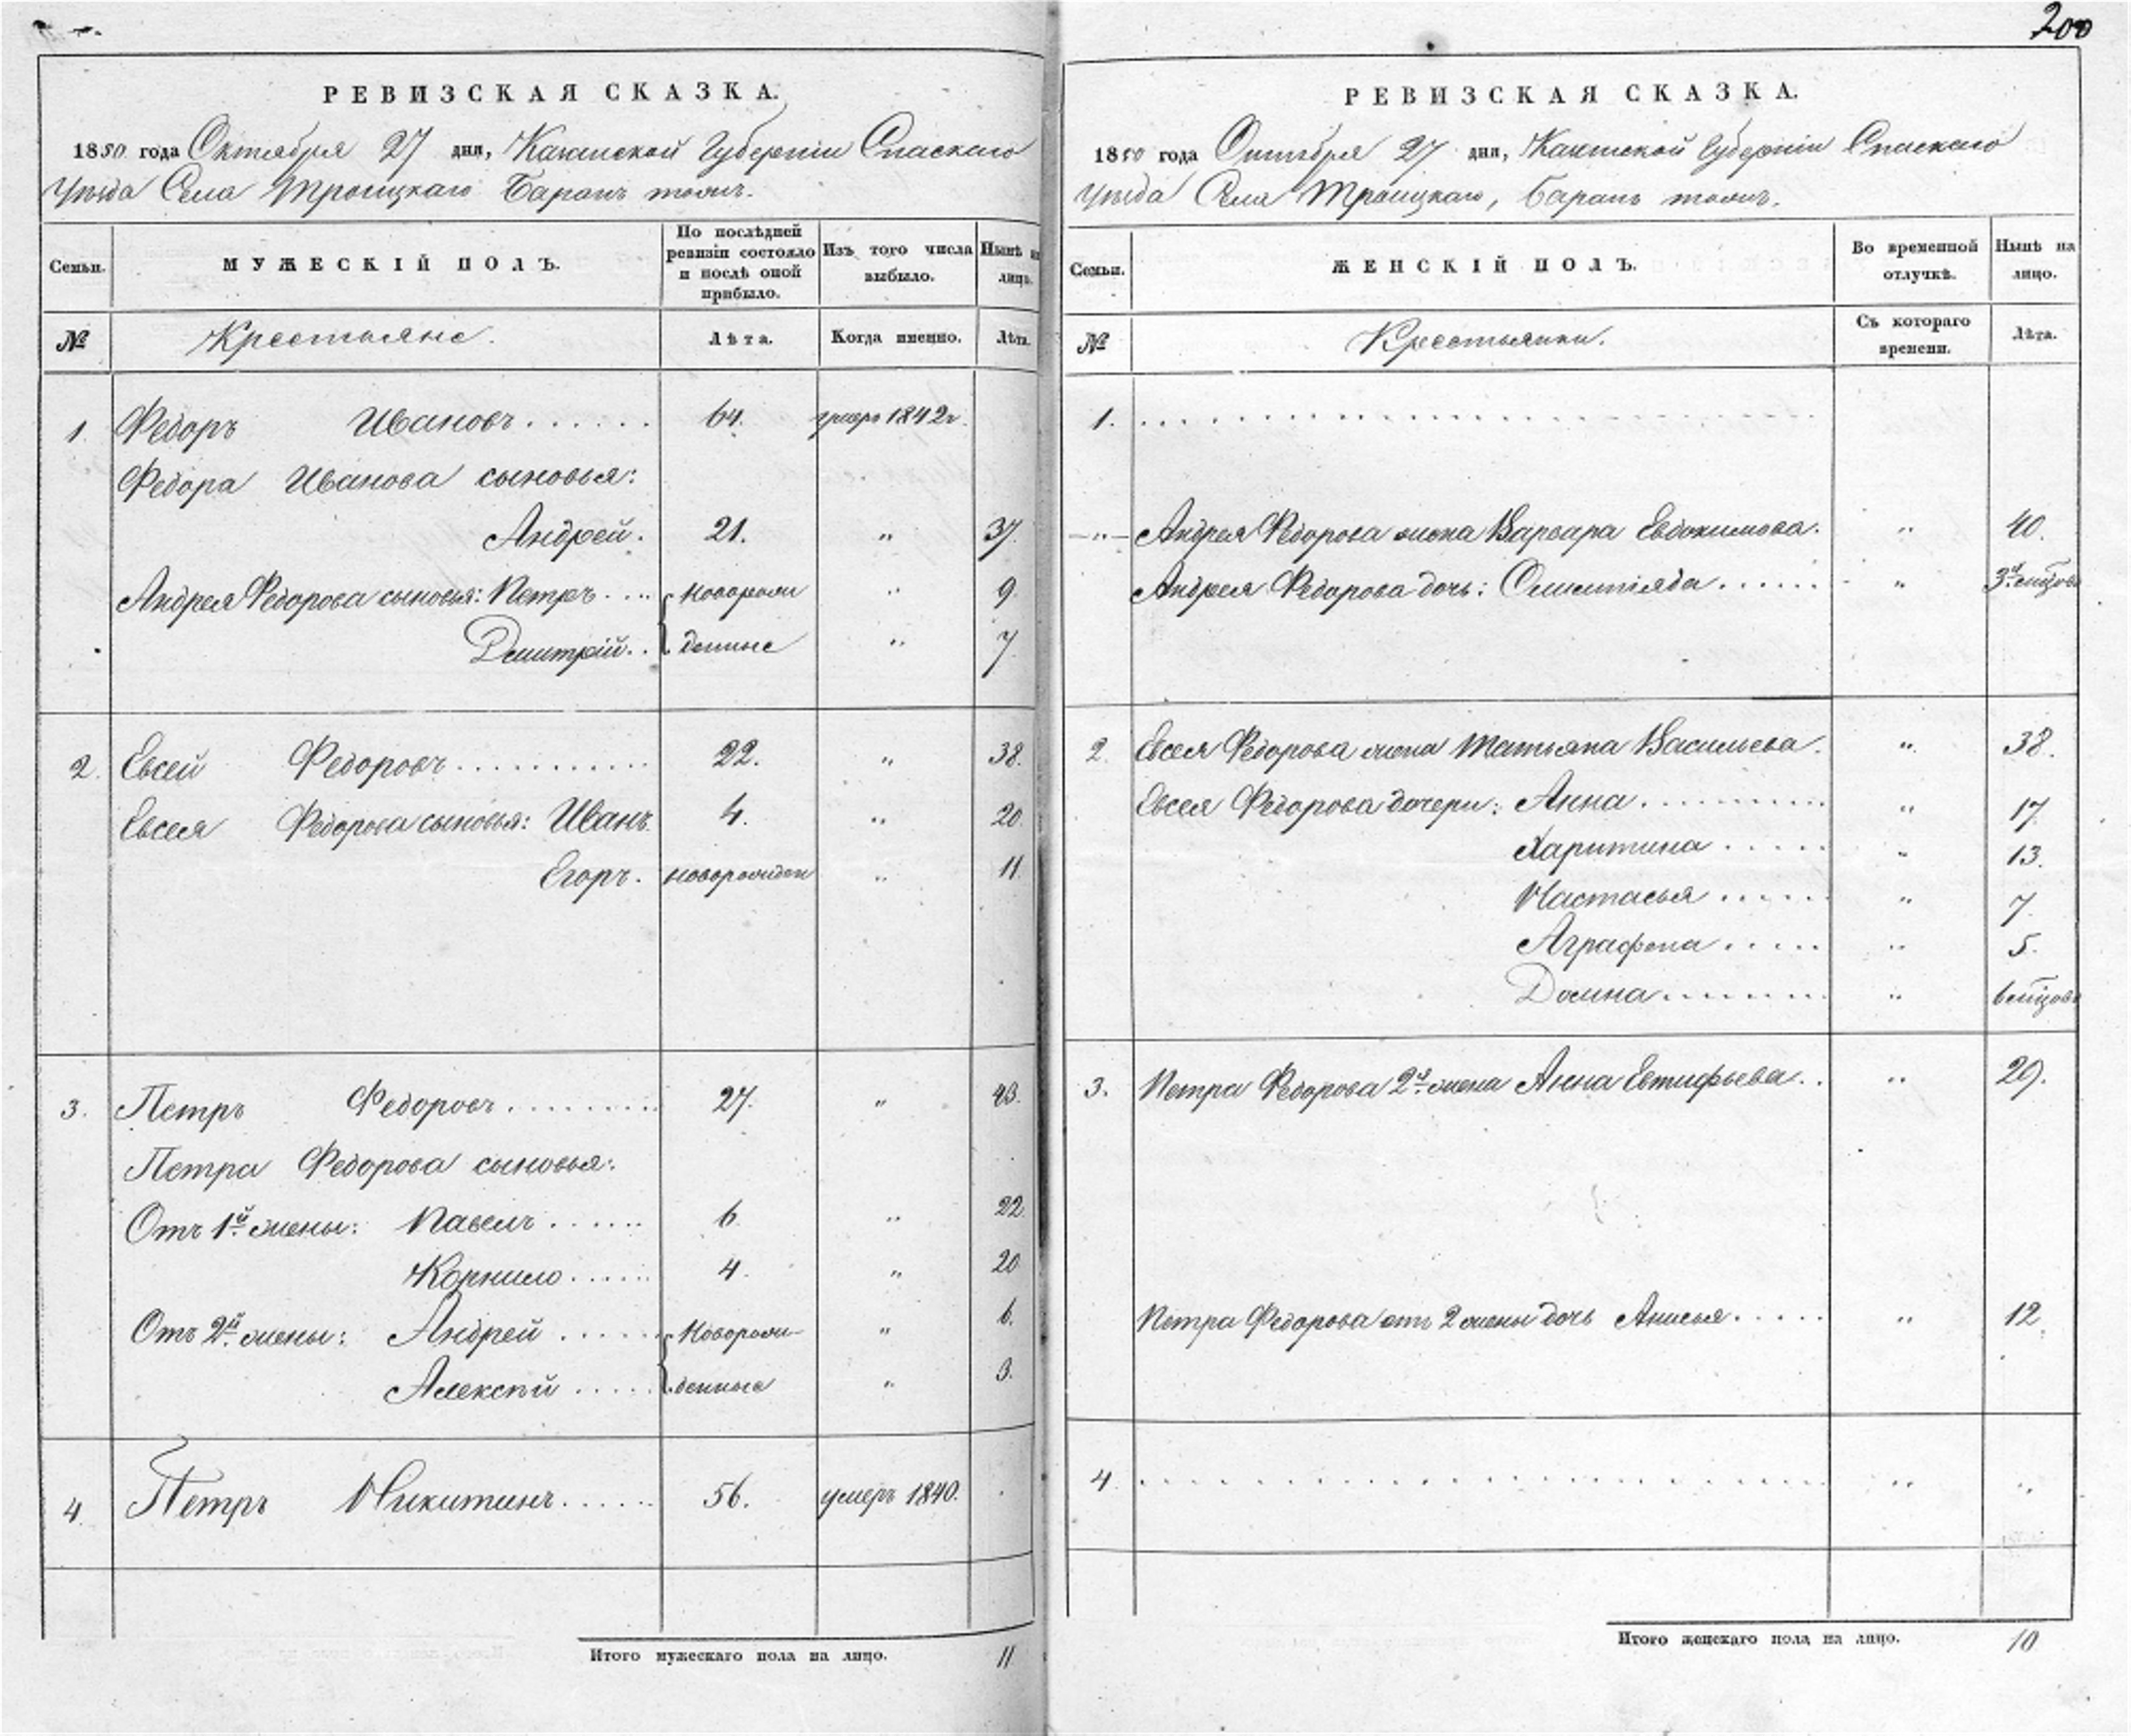 200
РЕВИЗСКАЯ СКАЗКА.
1850 года Октября 27 дня, Казанской Губернiи Спаскаго
Уѣзда Села Троицкаго Баранъ тожъ.
Семьи. МУЖЕСКIЙ ПОЛЪ. По послѣдней ревизiи состояло и послѣ оной прибыло. Изъ того числа выбыло. Нынѣ на лицо.
№ Крестьяне. Лѣта. Когда именно. Лѣта.
1. Федоръ Ивановъ...... 64. умеръ 1842г.
Федора Иванова сыновья:
Андрей. 21. " 37.
Андрея Федорова сыновья: Петръ.... новорож " 9.
Дмитрiй.. денные " 7.
2. Евсей Федоровъ........... 22. " 38.
Евсея Федорова сыновья: Иванъ. 4. " 20.
Егоръ. новорожден " 11.
3. Петръ Федоровъ........ 27. " 43.
Петра Федорова сыновья:
Отъ 1й жены: Павелъ...... 6. " 22.
Корнило...... 4. " 20
Отъ 2й жены: Андрей..... Новорож- " 6.
Алексѣй..... денные " 3.
4. Петръ Никитинъ...... 56. умеръ 1840.
Итого мужескаго пола на лицо. 11
РЕВИЗСКАЯ СКАЗКА.
1850 года Октября 27 дня, Казанской Губернiи Спаскаго
Уѣзда Села Троицкаго, Баранъ тожъ.
Семьи. ЖЕНСКIЙ ПОЛЪ. Во временной отлучкѣ. Нынѣ на лицо.
№ Крестьянки. Съ котораго времени. Лѣта.
1. ..............................
-"- Андрея Федорова жена Варвара Евдокимова. " 40.
Андрея Федорова дочь: Олимпiяда...... " 3
2. Евсея Федорова жена Татьяна Васильева. " 38.
Евсея Федорова дочери: Анна.......... " 17
Харитина..... " 13.
Настасья..... " 7.
Аграфена..... " 5.
Домна........ " 6
3. Петра Федорова 2я жена Анна Евтифьева.. " 29.
Петра Федорова отъ 2 жены дочь Анисья..... " 12.
4 .............................. " "
Итого женскаго пола на лицо. 10